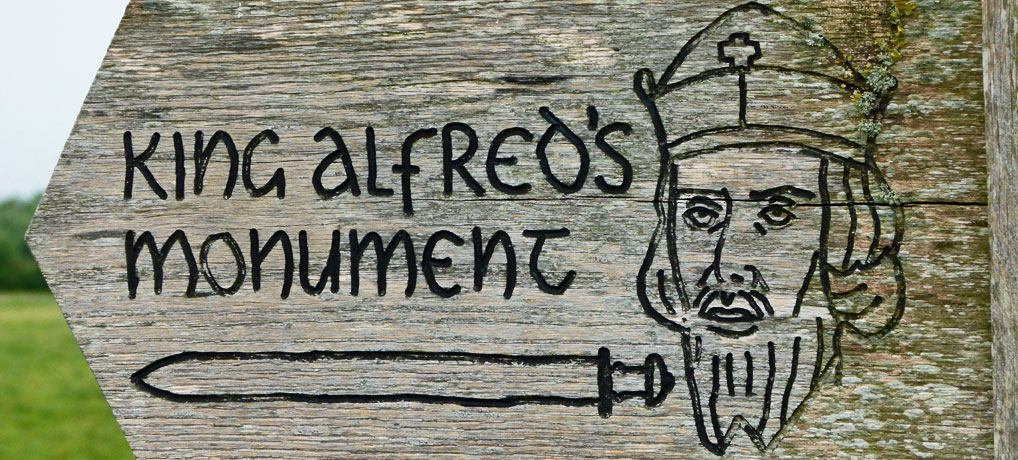 KING ALFRED'S
MONUMENT